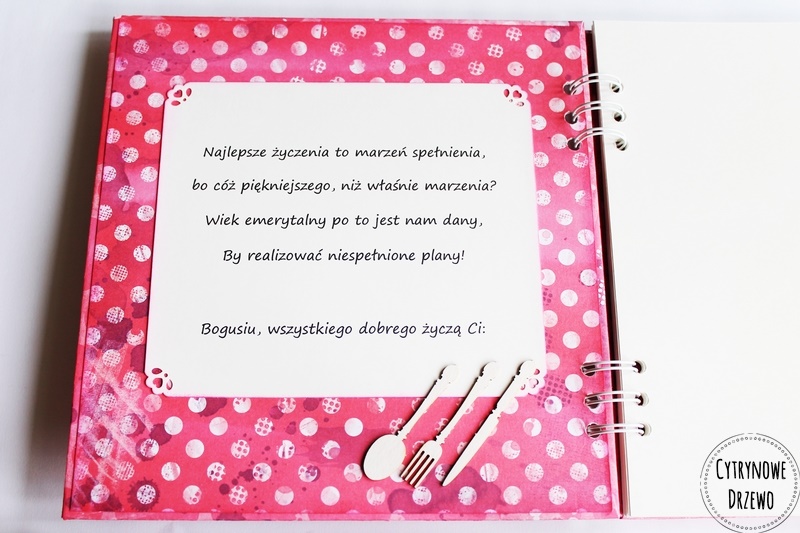 Najlepsze życzenia to marzeń spełnienia,
bo cóż piękniejszego, niż właśnie marzenia?
Wiek emerytalny po to jest nam dany,
By realizować niespełnione plany!
Bogusiu, wszystkiego dobrego życzą Ci:
CYTRYNOWE
DRZEWO